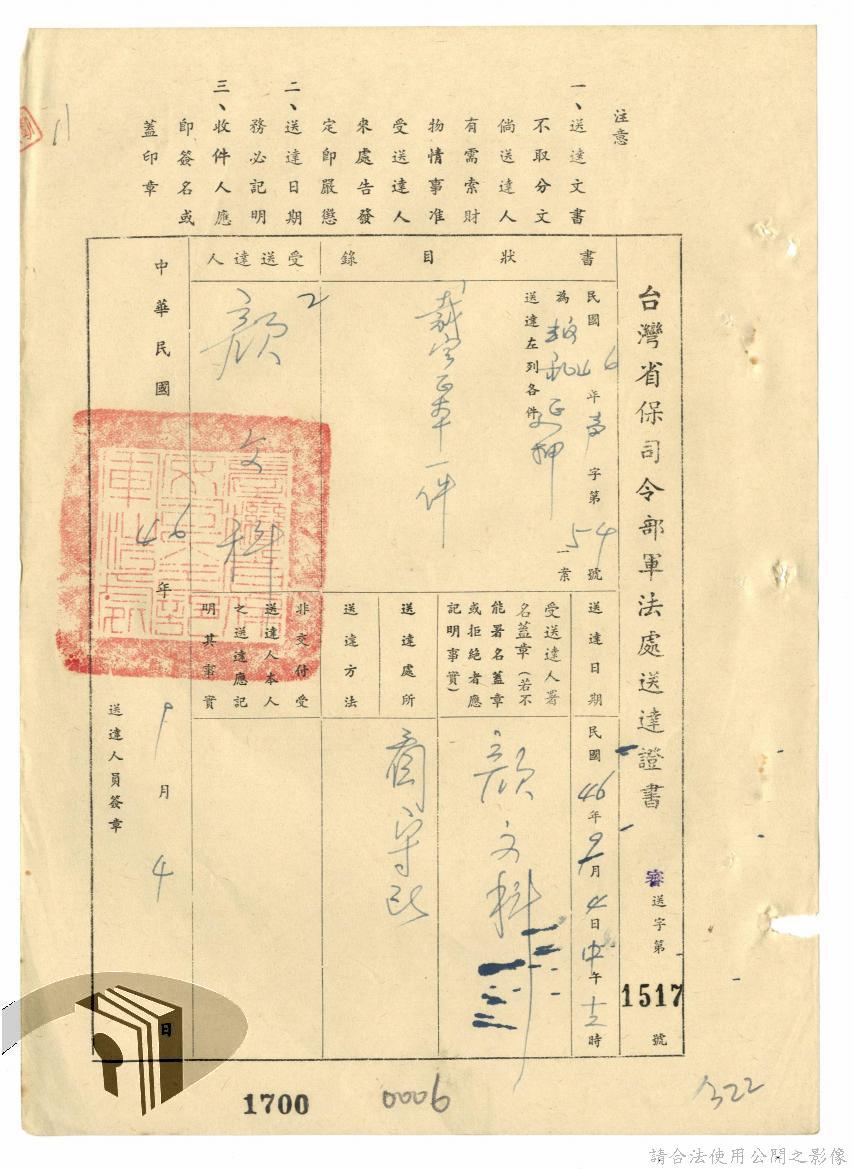 注意
一、送達文書
不取分文
倘送達人
有需索財
物情事准
受送達人
來處告發
定即嚴懲
二、送達日期
務必記明
三、收件人應
即簽名或
蓋印章
台灣省保司令部軍法處送達證書
審送字第1517號
書狀目錄
民國46年 字第54號
為 一案
送達左列各件
裁定正本一件
受送達人
顏文科
送達日期
民國46年9月4日中午十二時
受送達人署
名蓋章(若不
能署名蓋章
或拒絕者應
記明事實)
顏文科
送達處所
送達方法
非交付受
送達人本人
之送達應記
明其事實
中華民國46年9月4日
送達人員簽章
1700
0006
322
請合法使用公開之影像